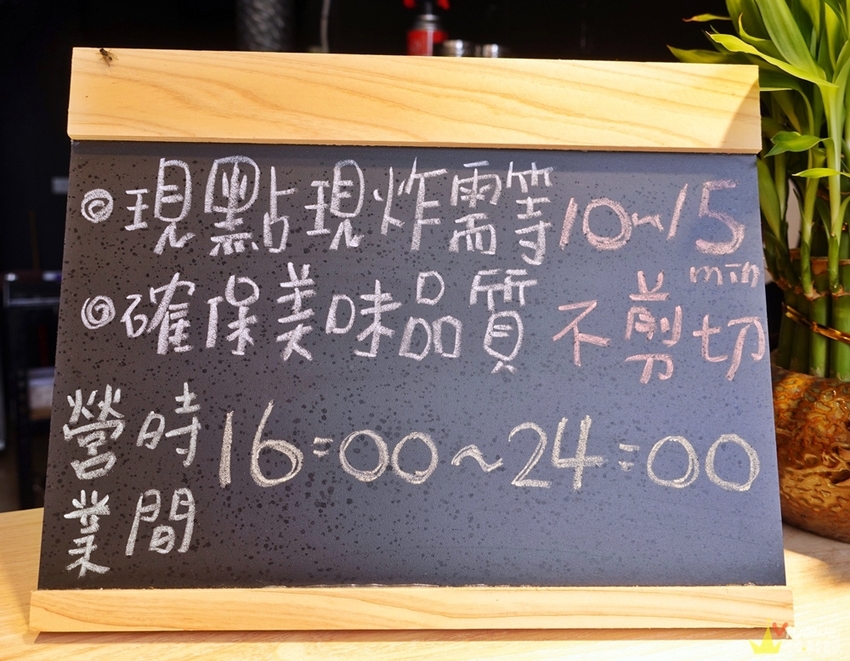 ◎現點現炸需等10~15min
◎確保美味品質不剪切
營業時間 16:00~24:00